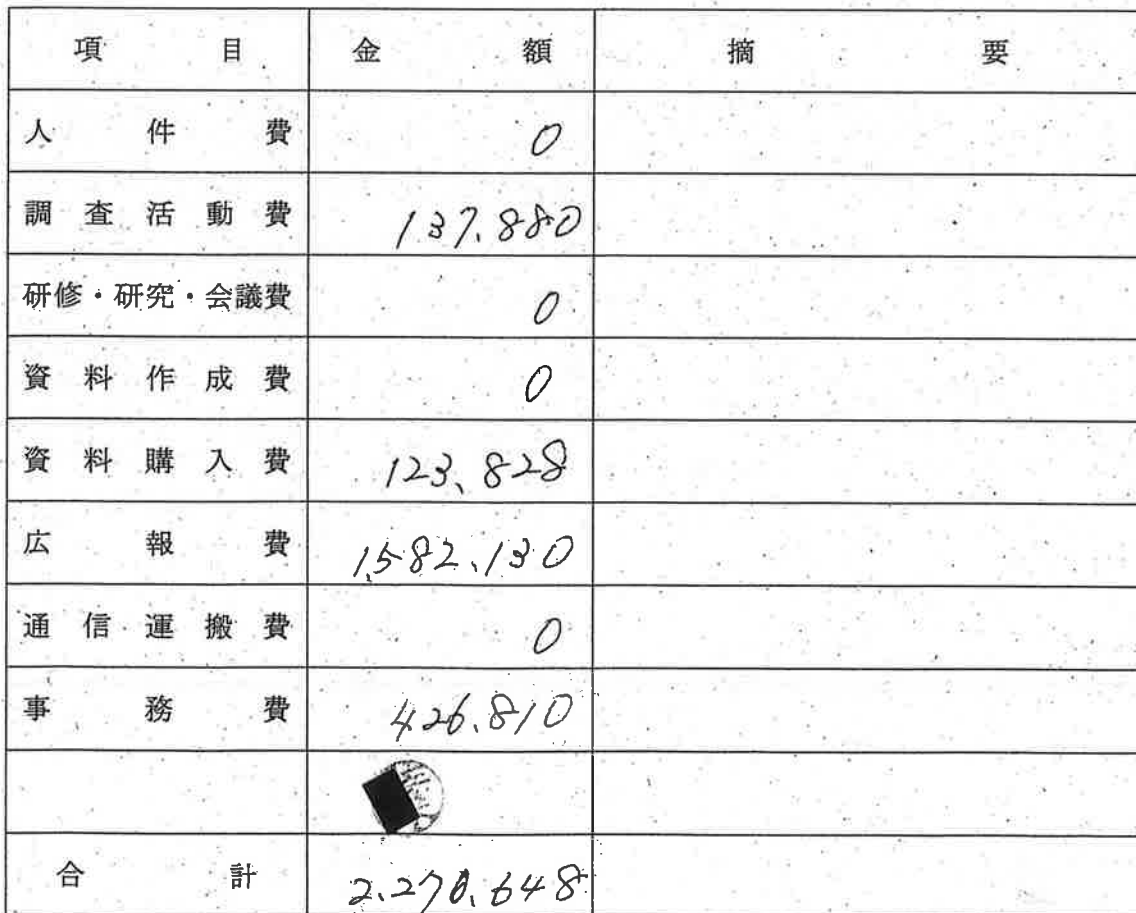 項目 金額 摘要
人件費 0
調査活動費 137.880
研修・研究・会議費 0
資料作成費 0
資料購入費 123,828
広報費 1,582,130
通信運搬費 0
事務費 426.810
合計 2.270.648